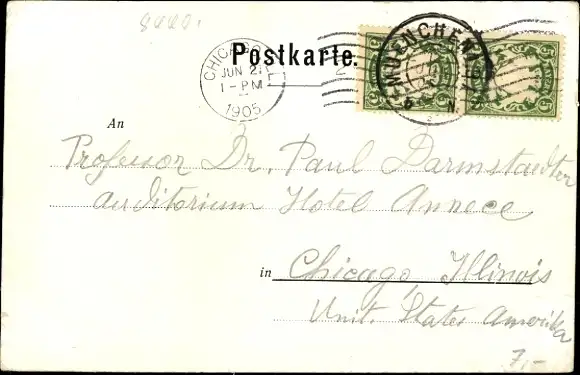 8440.
Postkarte.
CHICAGO
JUN 21
1-PM
1905
MUENCHEN
An
Professor Dr. Paul Darmstaedter
auditorium Hotel Annece
in Chicago, Illinois
Unit. States Amerika
7,-